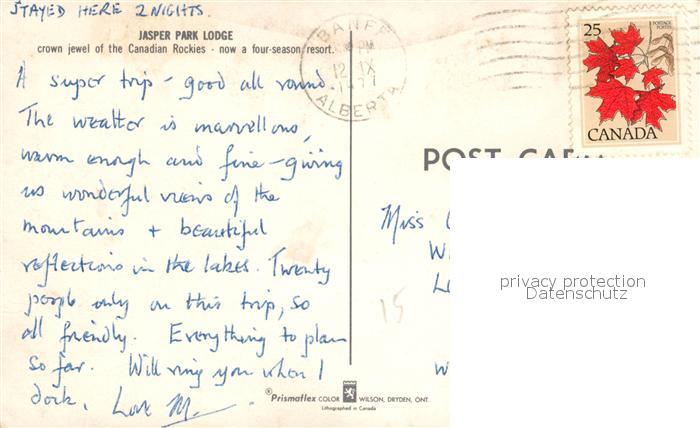 STAYED HERE 2 NIGHTS.
JASPER PARK LODGE
crown jewel of the Canadian Rockies - now a four-season resort.
A super trip - good all round.
The weather is marvellous,
warm enough and fine - giving
us wonderful views of the
mountains + beautiful
reflections in the lakes. Twenty
people only on this trip, so
all friendly. Everything to plan
so far. Will ring you when I
dock. Love M.
Prismaflex COLOR WILSON, DRYDEN, ONT.
Lithographed in Canada
BANFF
PM
12 IX
1977
ALBERTA
25
POSTAGE
POSTES
CANADA
POST CARD
Miss
W
L
15
W
privacy protection
Datenschutz